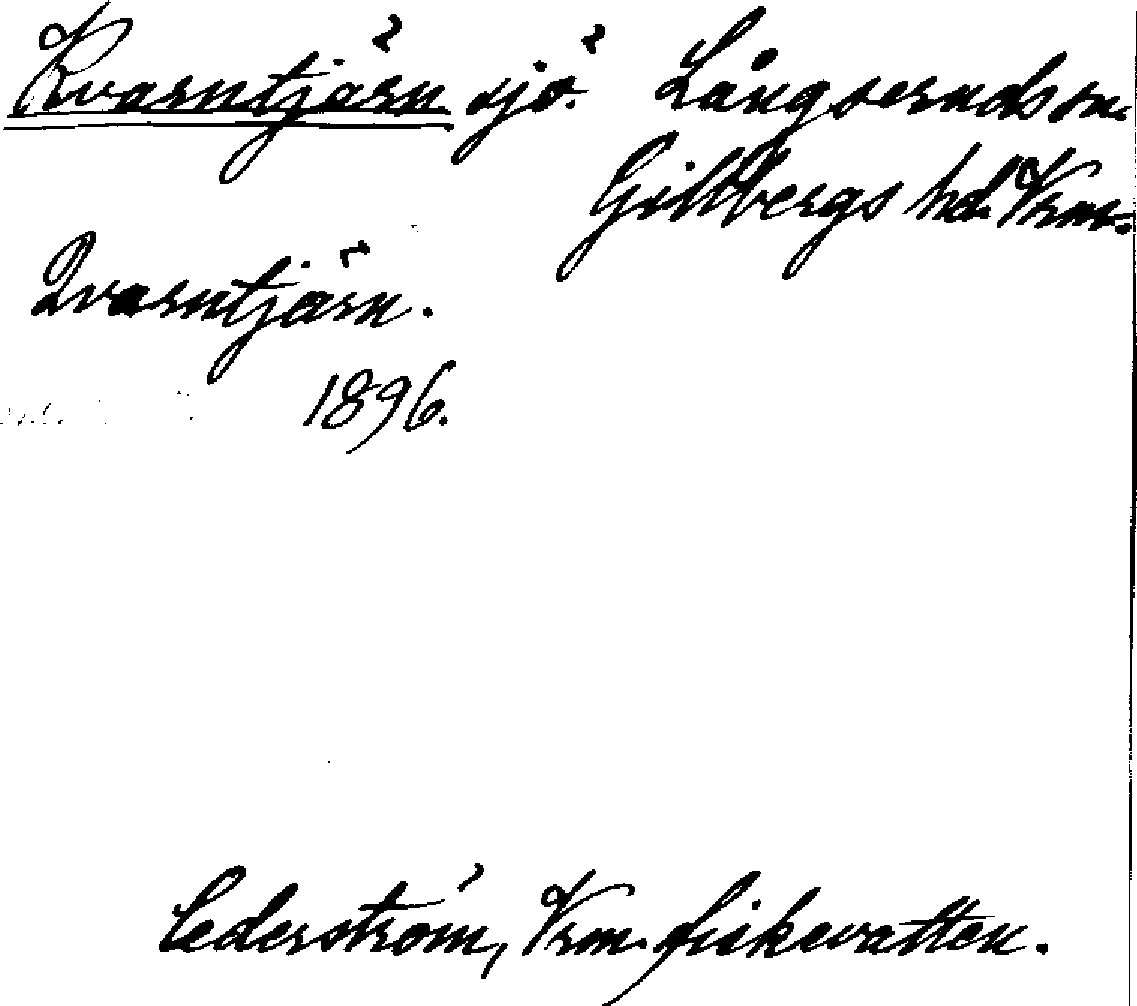 Kvarntjärn sjö. Långseruds sn.
Gillbergs hd. Vrm.
Qvarntjärn.
1896.
Cederström, Vrm. fiskevatten.